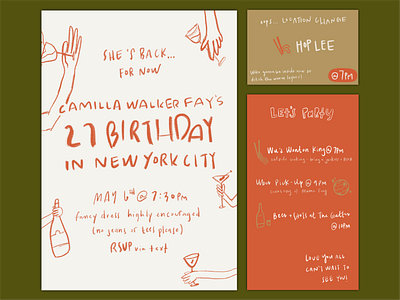 SHE'S BACK...
FOR NOW
CAMILLA WALKER FAY'S
27 BIRTHDAY
IN NEW YORK CITY
MAY 6th @ 7:30pm
fancy dress highly encouraged
(no jeans or tees please)
RSVP via text
oops... LOCATION CHANGE
HOP LEE
@ 7PM
Let's Party
Wu's Wonton King @ 7PM
Uber Pick-Up @ 9PM
Beers + Girls at The Gutter
@ 10PM
LOVE YOU ALL
CAN'T WAIT TO
SEE YOU!